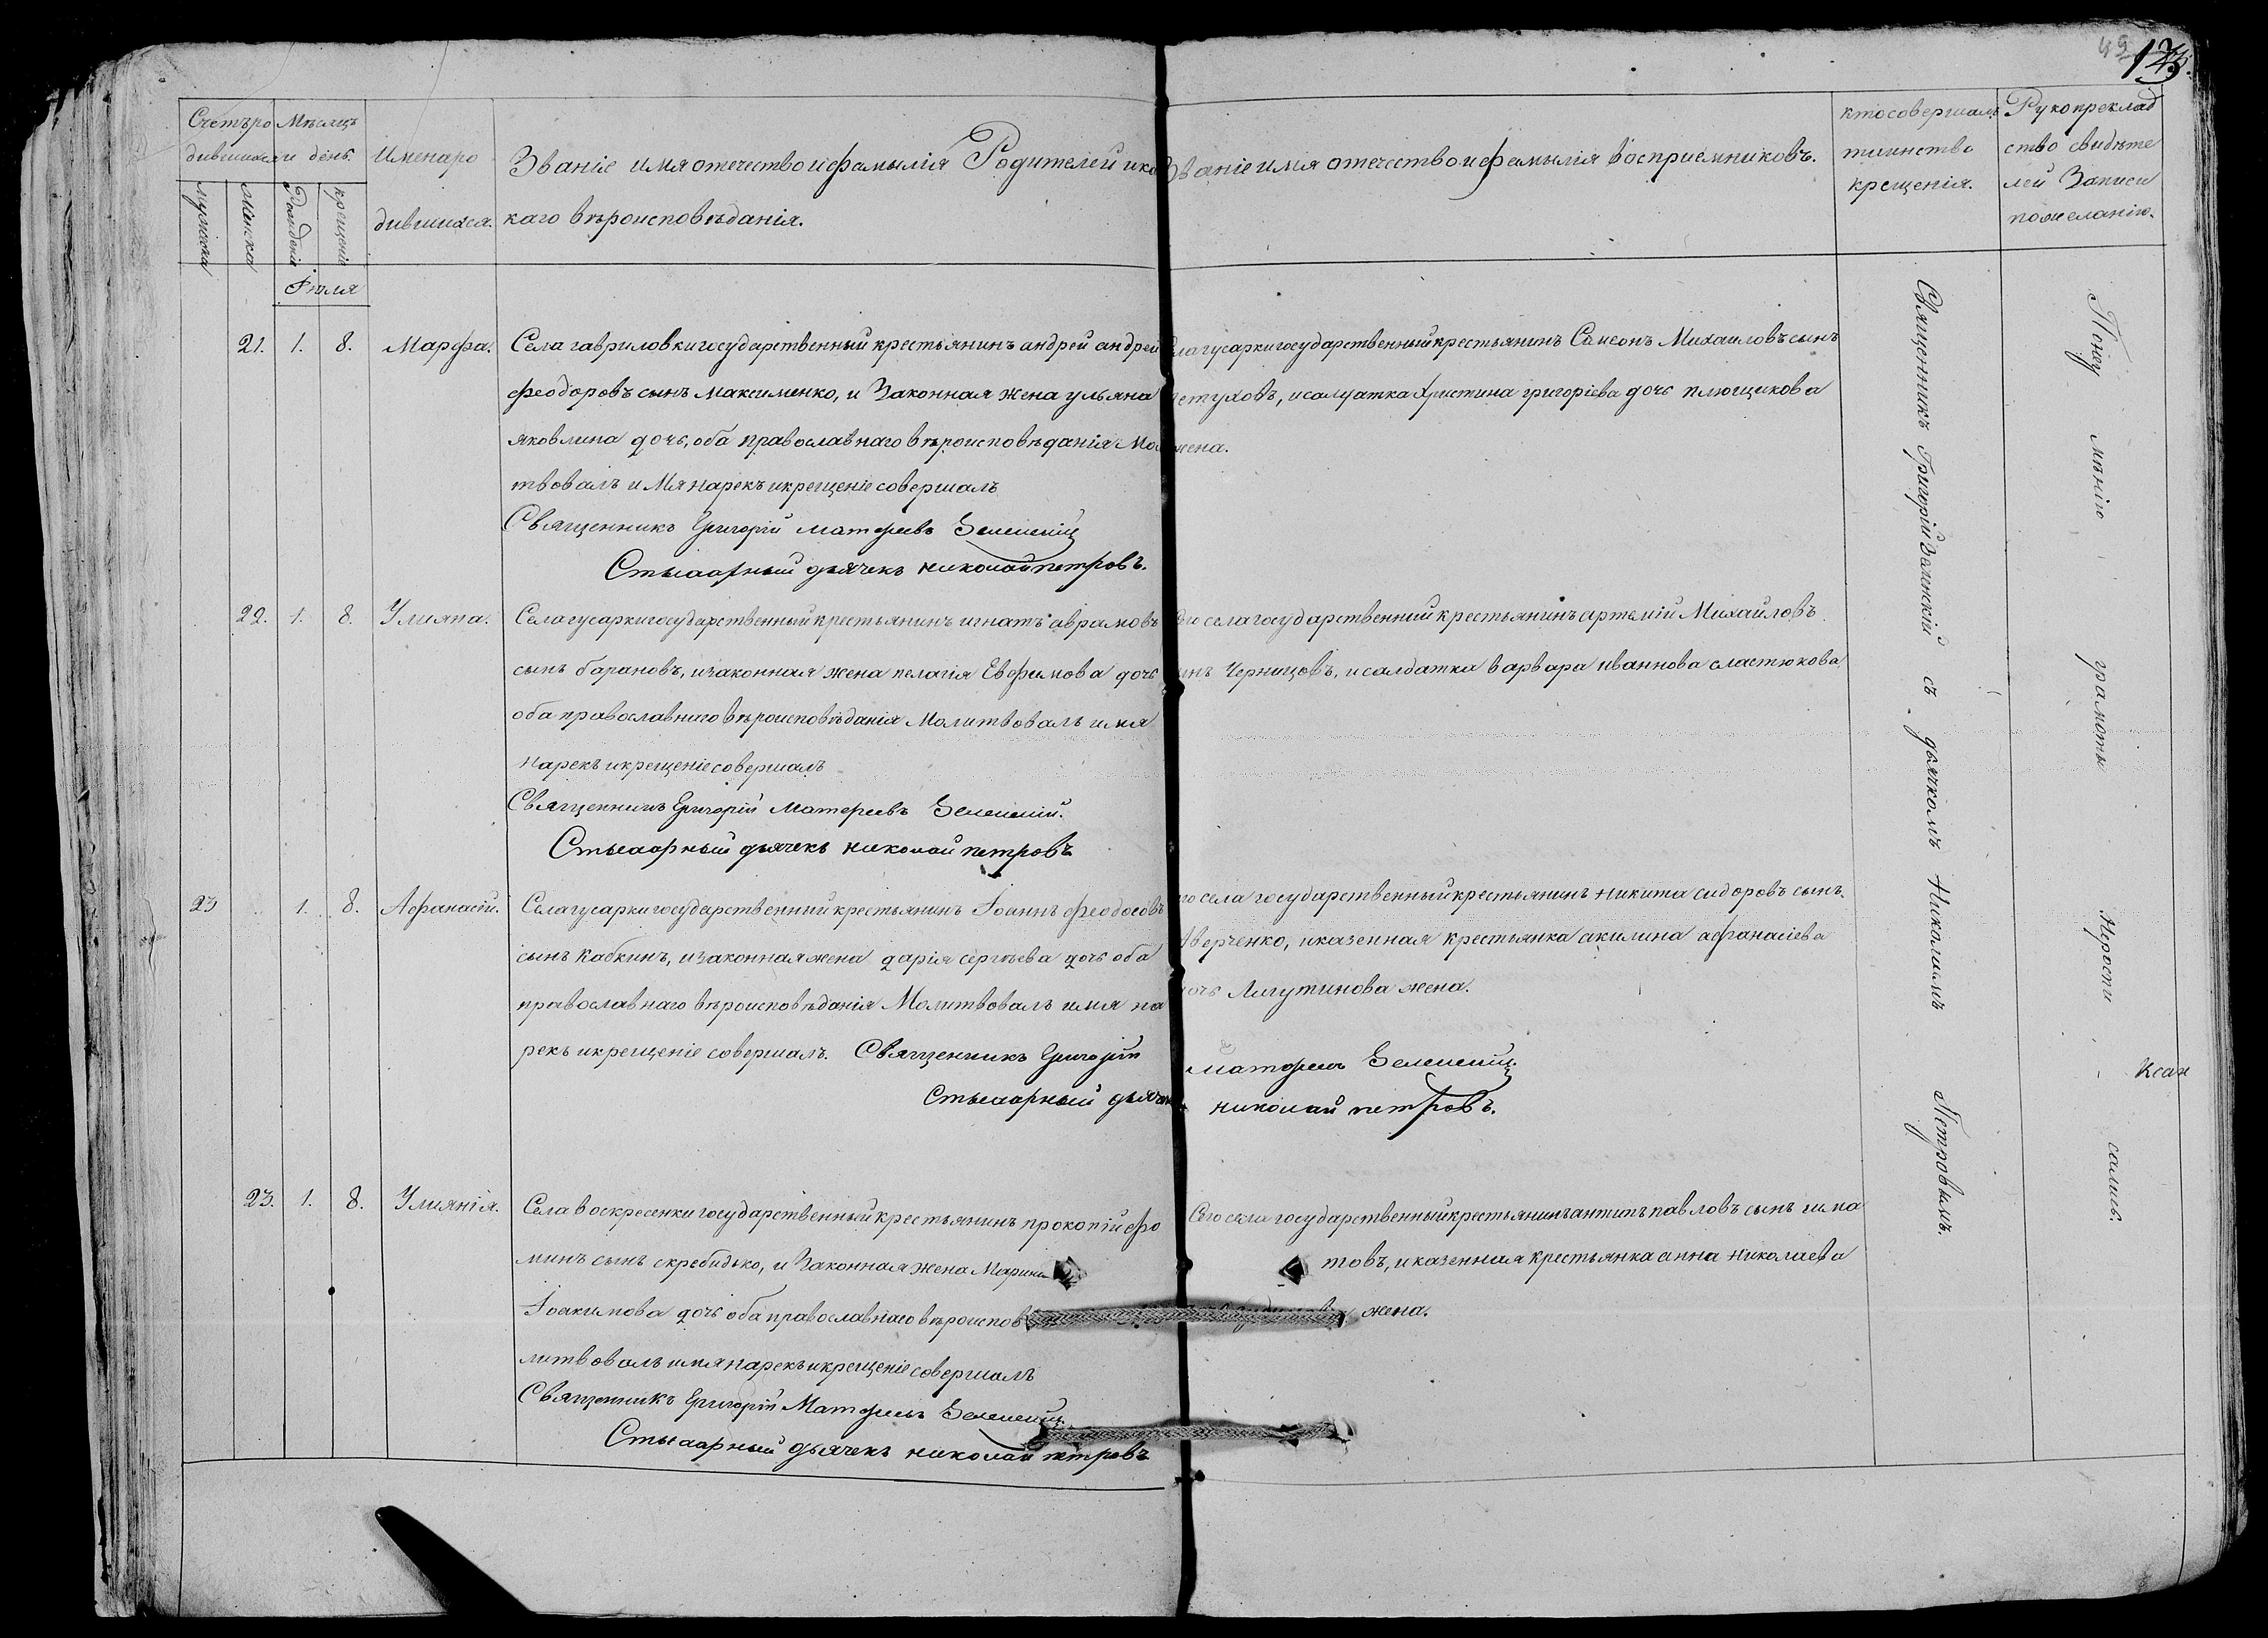 49
Счетъро Мѣсяцъ
дившихся и день.
мужска
Женска
Рожденіе
крещеніе
Именаро
дившихся.
Званіе имя отечество и фамылія Родителей и ка
каго вѣроисповѣданія.
Званіе имя отечество и фамылія воспріемниковъ.
кто совершалъ
таинство
крещенія.
Рукопреклад
ство свидѣте
лей Записи
пожеланію.
Іюля
21. 1. 8. Марфа.
Села гавриловки государственный крестьянинъ андрей андрей
феодоровъ сынъ максименко, и Законная жена ульяна
яковлина дочь, оба православнаго вѣроисповѣданія Мо
твовалъ и Мя нарекъ и крещеніе совершалъ
Священникъ Григорій матфеевъ Зеленскій
дьячекъ николай петровъ.
гусарки государственный крестьянинъ Самсонъ Михаиловъ сынъ
петуховъ, и салдатка Христина григоріева дочь плющикова
жена.
22. 1. 8. Улияна.
Села гусарки государственный крестьянинъ игнатъ аврамовъ
сынъ барановъ, и законная жена пелагія Евфимова дочь
оба православнаго вѣроисповѣданія Молитвовалъ имя
нарекъ и крещеніе совершалъ
Священникъ Григорій Матфеевъ Зеленскій.
дьячекъ николай петровъ
села государственный крестьянинъ артемій Михайловъ
Черницовъ, и салдатка варвара иваннова сластюкова
23 1. 8. Афанасій.
Села гусарки государственный крестьянинъ Іоаннъ феодосовъ
сынъ Кабкинъ, и законная жена дарія сергѣева дочь оба
православнаго вѣроисповѣданія Молитвовалъ имя на
рекъ и крещеніе совершалъ. Священникъ Григорій
матфеевъ Зеленскій.
дьячекъ николай петровъ.
села государственный крестьянинъ никита сидоровъ сынъ.
Аверченко, и казенная крестьянка акилина афанасіева
дочь Лигутинова жена.
23. 1. 8. Улиянія.
Села воскресенки государственный крестьянинъ прокопій фо
минъ сынъ скребидько, и Законная жена Марина
Іоакимова дочь оба православнаго вѣроиспов
литвовалъ имя нарекъ и крещеніе совершалъ
Священникъ Григорій Матфеевъ Зеленскій
дьячекъ николай петровъ
Сего села государственный крестьянинъ антипъ павловъ сынъ ипа
товъ, и казенная крестьянка анна николаева
жена.
Священникъ Григорій Зеленскій съ дьячкомъ Николаемъ Петровымъ.
мѣнію грамоты